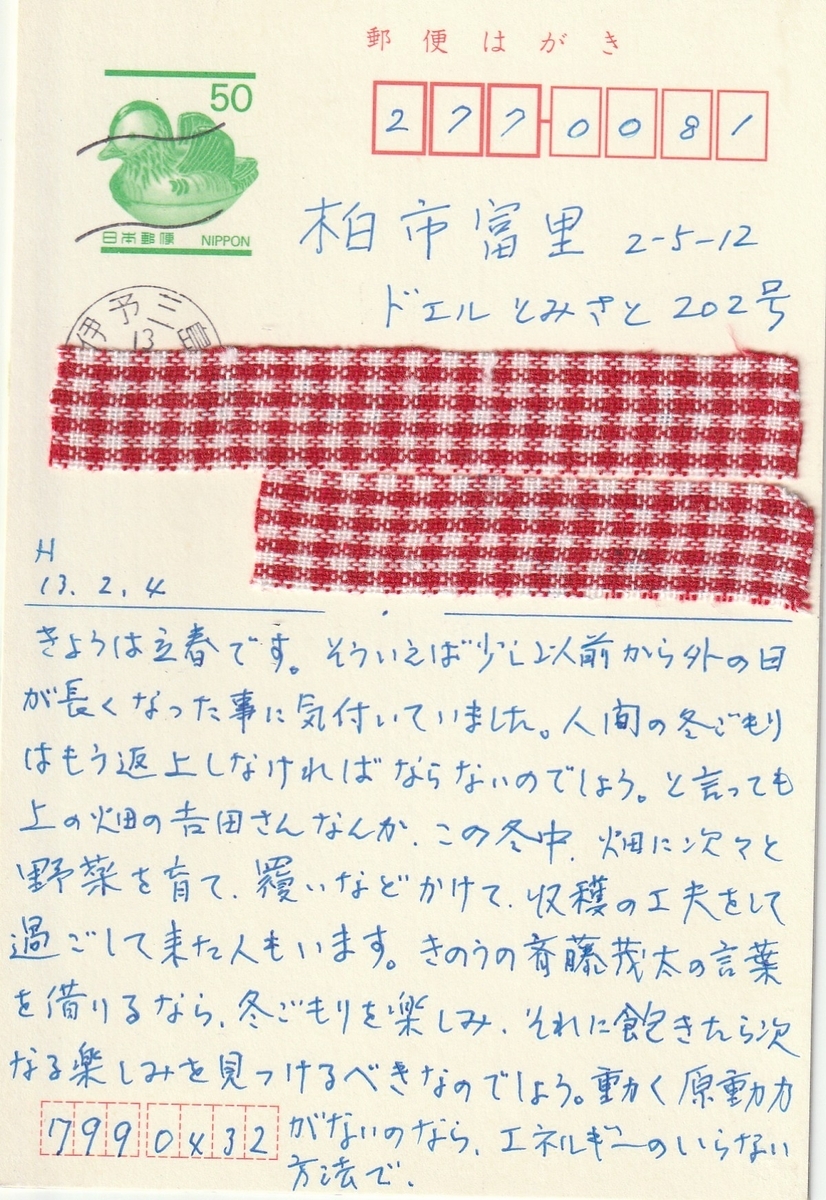 郵便はがき
50
日本郵便 NIPPON
277-0081
柏市富里 2-5-12
ドエルとみさと 202号
伊予三島
13
H
13.2.4
きょうは立春です。そういえば少し以前から外の日
が長くなった事に気付いていました。人間の冬ごもり
はもう返上しなければならないのでしょう。と言っても
上の畑の吉田さんなんか、この冬中、畑に次々と
野菜を育て、覆いなどかけて、収穫の工夫をして
過ごして来た人もいます。きのうの斉藤茂太の言葉
を借りるなら、冬ごもりを楽しみ、それに飽きたら次
なる楽しみを見つけるべきなのでしょう。動く原動力
がないのなら、エネルギーのいらない
方法で。
7990432